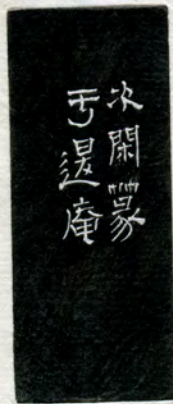 次閑篆
于退庵